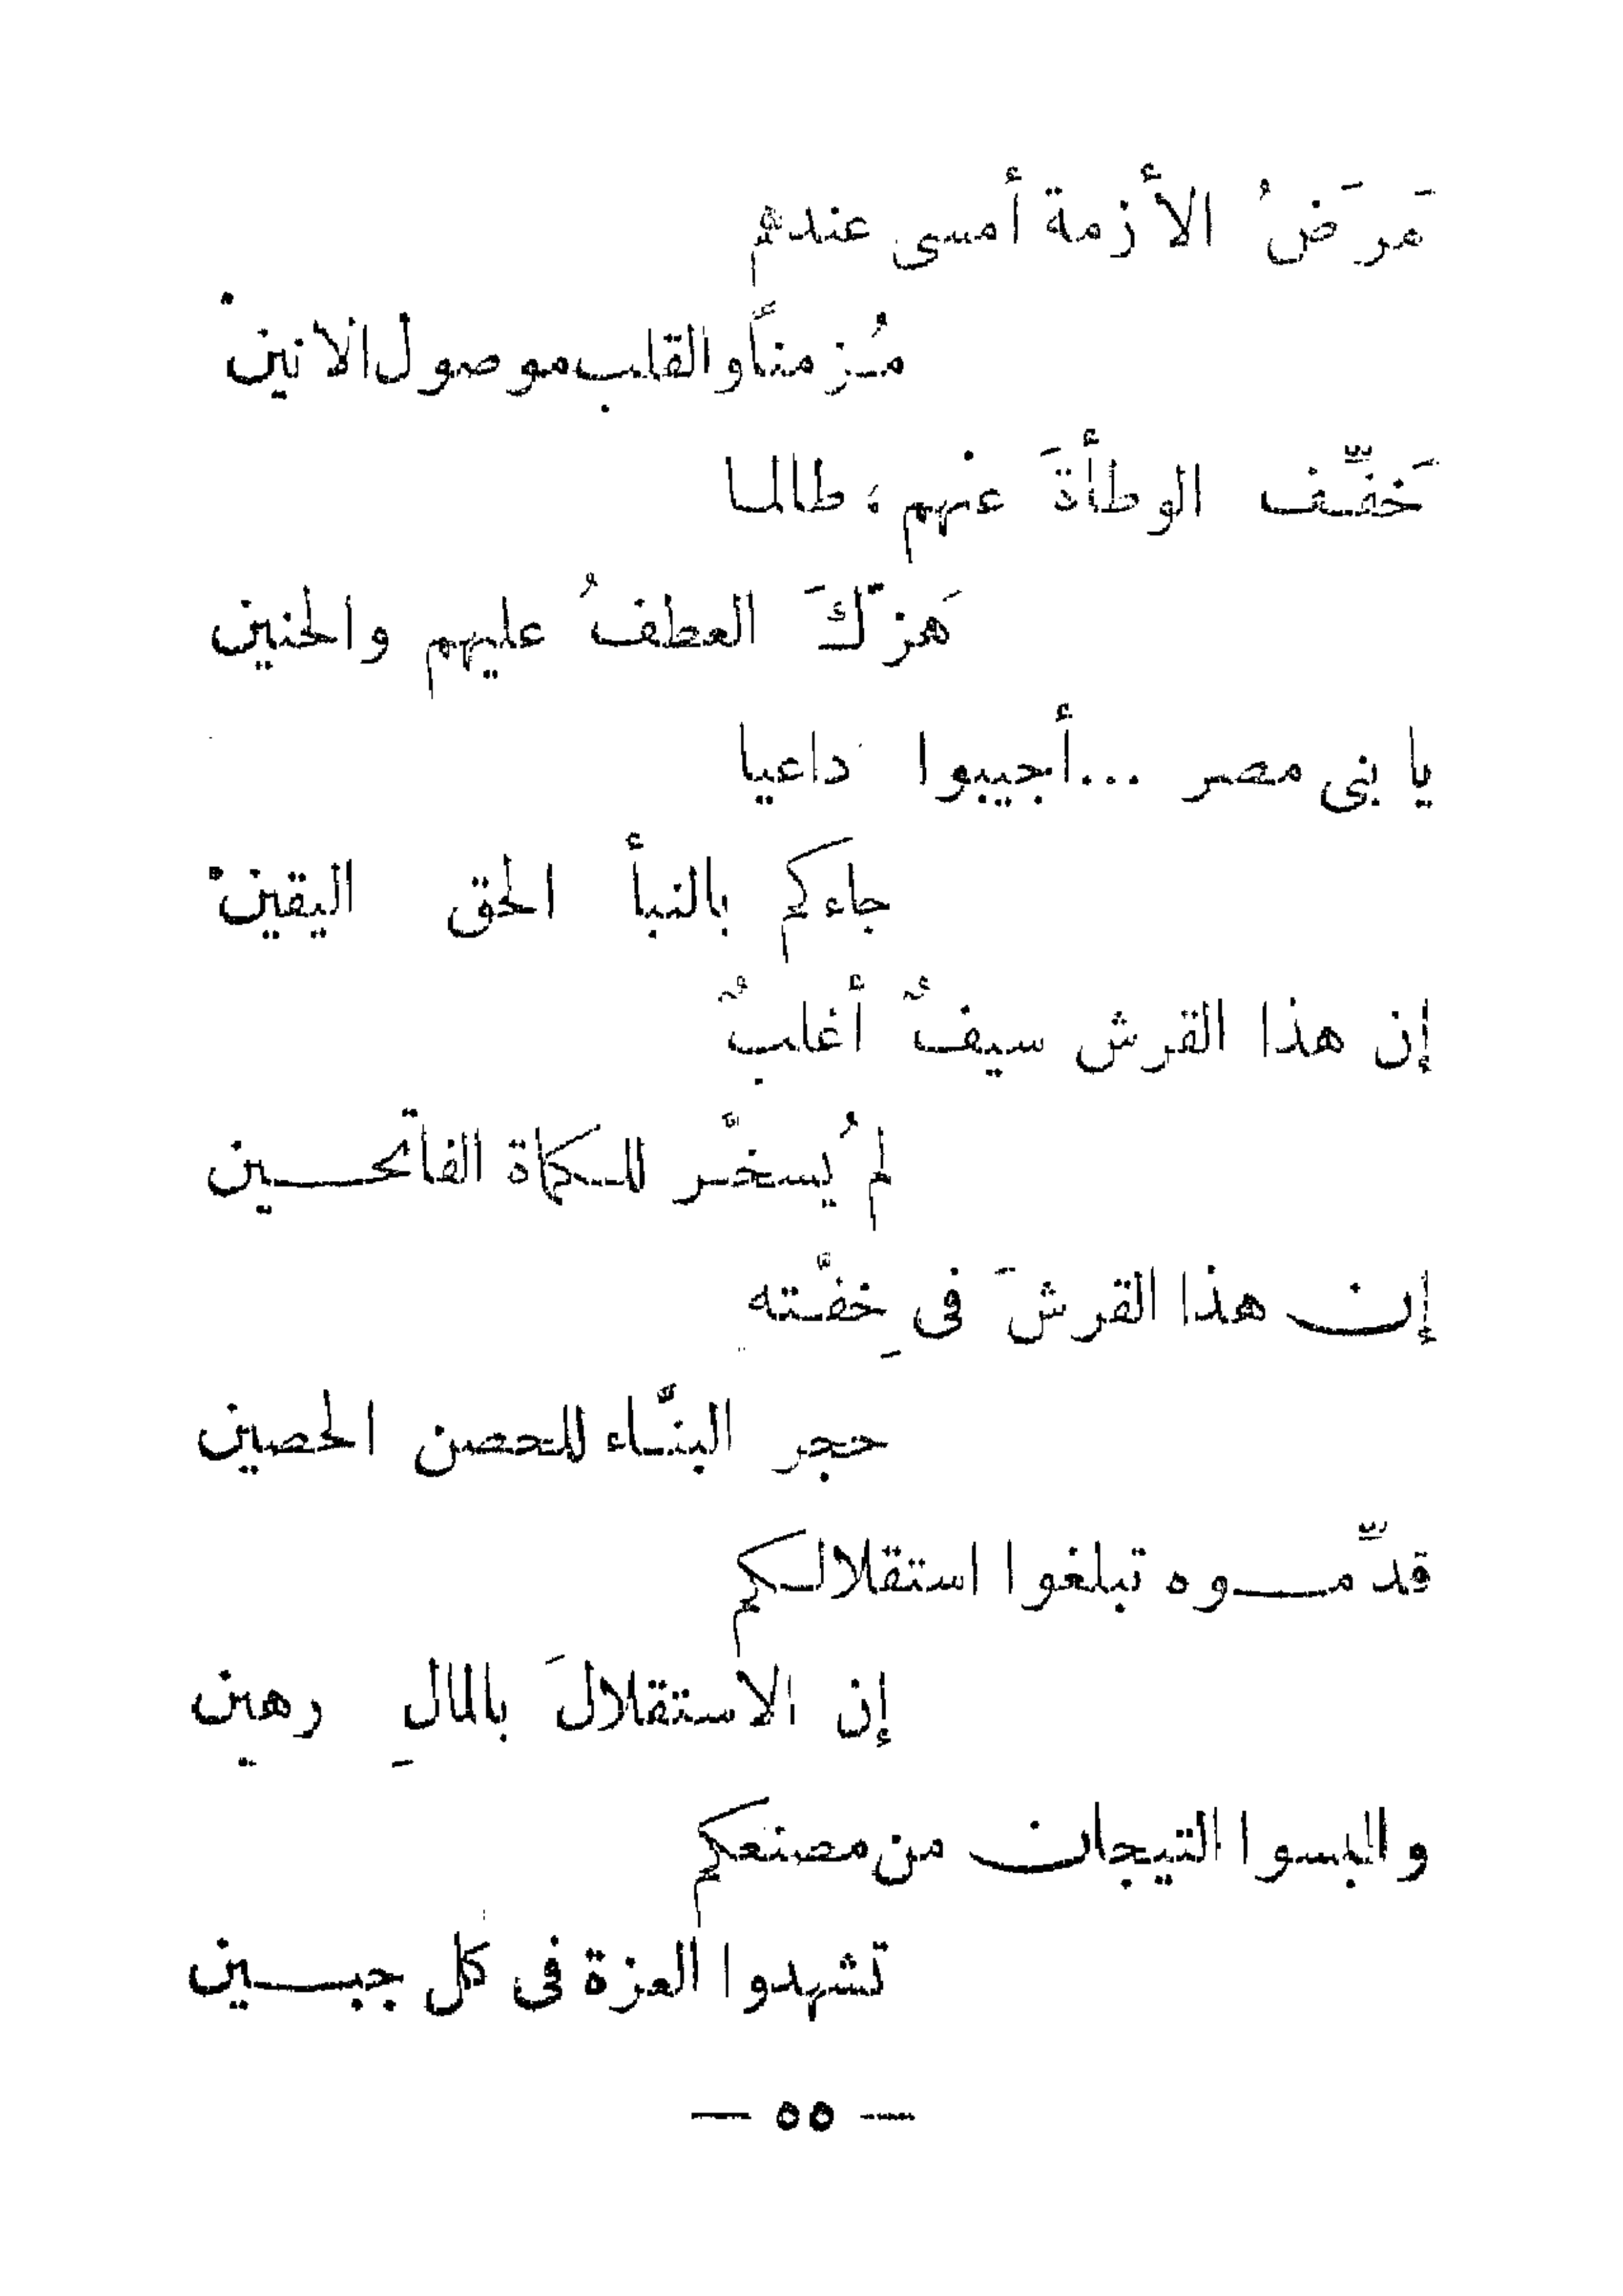 مَرَضُ الأزمة أمسى عندهم
مُزمناً والقلب موصول الانينْ
خَفِّف الوطأةَ عنهم ، طالما
هَزّكَ العطفُ عليهم والحنين
يا بنى مصر ... أجيبوا داعيا
جاءكم بالنبأ الحق اليقينْ
إن هذا القرش سيفٌ أغلبٌ
لم يُسخَّر للكماة الفاتحين
إن هذا القرشَ فى خِفَّته
حجر البنَّاء للحصن الحصين
قدِّموه تبلغوا استقلالكم
إن الاستقلالَ بالمالِ رهين
والبسوا التيجان من مصنعكم
تشهدوا العزة فى كل جبين
— ٥٥ —